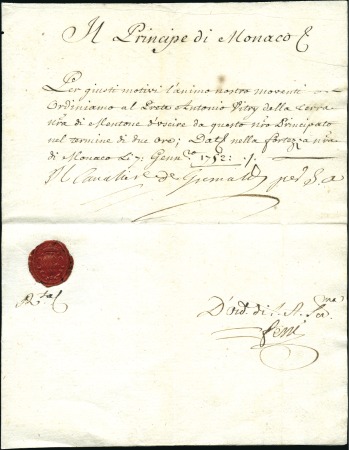 Il Principe di Monaco &
Per giusti motivi l'animo nostro moventi
Ordiniamo al Prete Antonio Vitry della Terra
nra di Mentone d'uscire da questo nro Principato
nel termine di due ore; Dat nella fortezza nra
di Monaco li 7: Genn.ro 1752:
Il Cavaliere de Grimaldi per S. A
D'ord. di S. A. Ser.ma